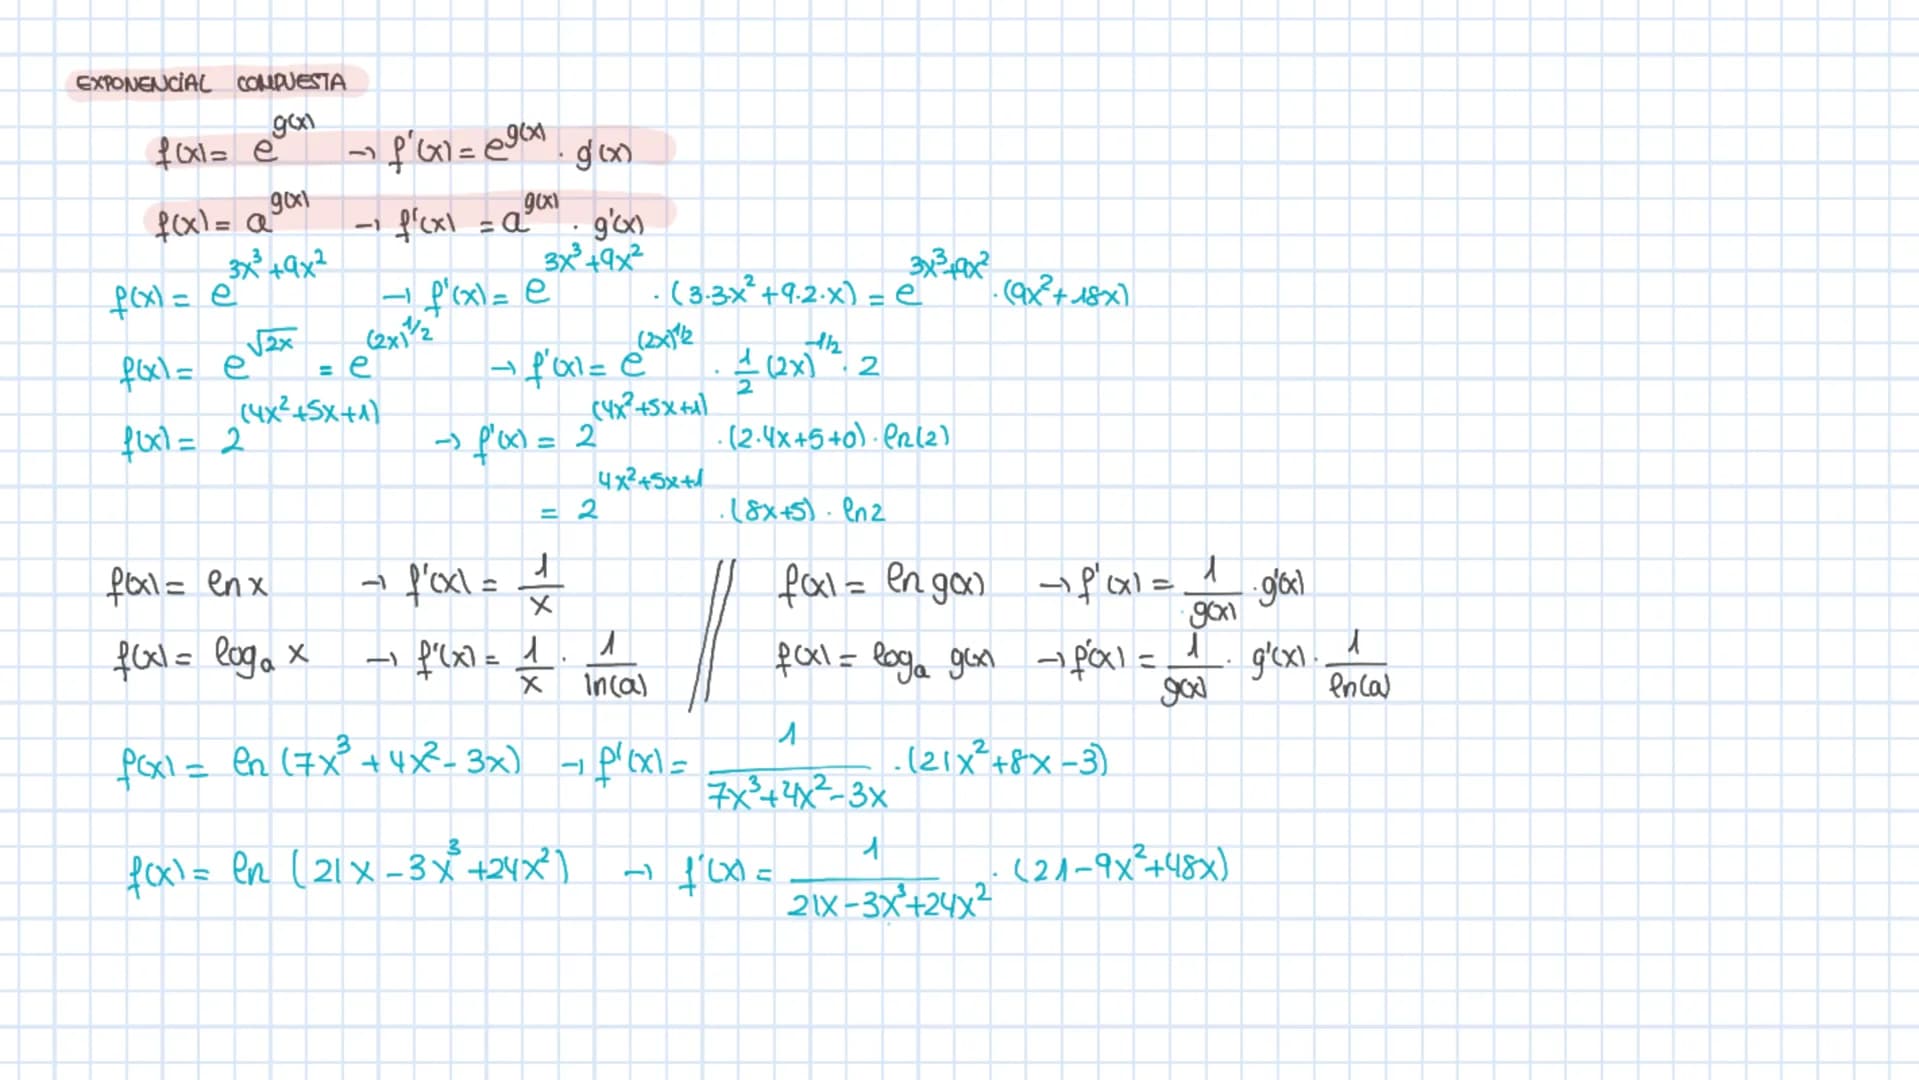 EXPONENCIAL COMPUESTA
f(x) = e^g(x) → f'(x) = e^g(x) · g'(x)
f(x) = a^g(x) → f'(x) = a^g(x) · g'(x)
f(x) = e^(3x³+9x²) → f'(x) = e^(3x³+9x²) · (3·3x²+9·2·x) = e^(3x³+9x²) · (9x²+18x)
f(x) = e^√2x = e^(2x)^1/2 → f'(x) = e^(2x)^1/2 · 1/2 (2x)^-1/2 · 2
f(x) = 2^(4x²+5x+1) → f'(x) = 2^(4x²+5x+1) · (2·4x+5+0) · ln(2)
= 2^4x²+5x+1 · (8x+5) · ln2
f(x) = ln x → f'(x) = 1/x // f(x) = ln g(x) → f'(x) = 1/g(x) · g'(x)
f(x) = log_a x → f'(x) = 1/x · 1/ln(a) // f(x) = log_a g(x) → f'(x) = 1/g(x) · g'(x) · 1/ln(a)
f(x) = ln (7x³+4x²-3x) → f'(x) = 1/(7x³+4x²-3x) · (21x²+8x-3)
f(x) = ln (21x-3x³+24x²) → f'(x) = 1/(21x-3x³+24x²) · (21-9x²+48x)